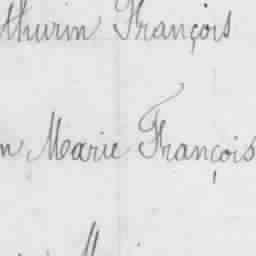 thurin François
n Marie François